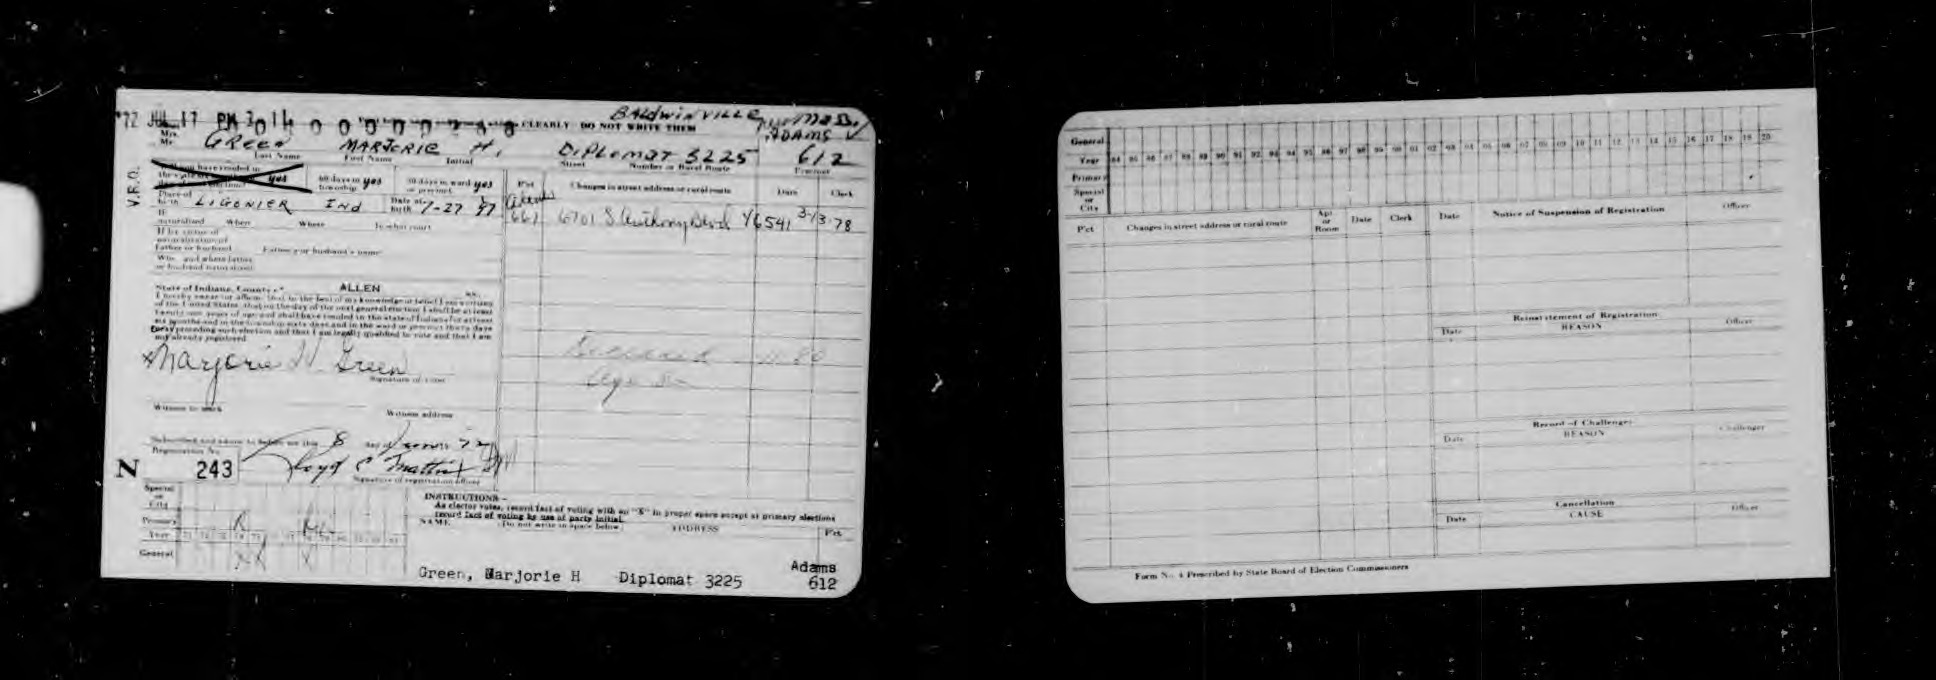 '72 JUL 17 PM 3 01
BALDWINVILLE
CLEARLY DO NOT WRITE THEM
ADAMS
Mrs.
Mr. GREEN MARJORIE H. DIPLOMAT 3225 612
Last Name First Name Initial Street Number or Rural Route Precinct
V.R.O.
yes 60 days in township yes 30 days in ward or precinct yes P'ct Changes in street address or rural route Date Clerk
Place of birth LIGONIER IND Date of birth
661 6701 S Anthony Blvd 46541 3-13-78
If naturalized When Where In what court
If by virtue of
naturalization of
Father or husband Father's or husband's name
When and where father
or husband naturalized
State of Indiana, County of ALLEN ss.:
I hereby swear (or affirm) that to the best of my knowledge or belief I am a citizen
of the United States, that on the day of the next general election I shall be at least
twenty-one years of age and shall have resided in the state of Indiana for at least
six months and in the township sixty days and in the ward or precinct thirty days
next preceding such election and that I am legally qualified to vote and that I am
not already registered.
Marjorie H. Green
Signature of voter
Witness to mark Witness address
Subscribed and sworn to before me this 8 day of 72
Registration No.
N 243 Lloyd
Signature of registration officer
Special
or
City
Primary R
Year
General X X X
INSTRUCTIONS—
As elector votes, record fact of voting with an "X" in proper space except at primary elections
record fact of voting by use of party initial.
NAME (Do not write in space below) ADDRESS P'ct
Green, Marjorie H Diplomat 3225 Adams
612
General
Year 84 85 86 87 88 89 90 91 92 93 94 95 96 97 98 99 00 01 02 03 04 05 06 07 08 09 10 11 12 13 14 15 16 17 18 19 20
Primary
Special
or
City
P'ct Changes in street address or rural route Apt or Room Date Clerk Date Notice of Suspension of Registration Officer
Reinstatement of Registration
Date REASON Officer
Record of Challenges
Date REASON Challenger
Cancellation
Date CAUSE Officer
Form No. 4 Prescribed by State Board of Election Commissioners